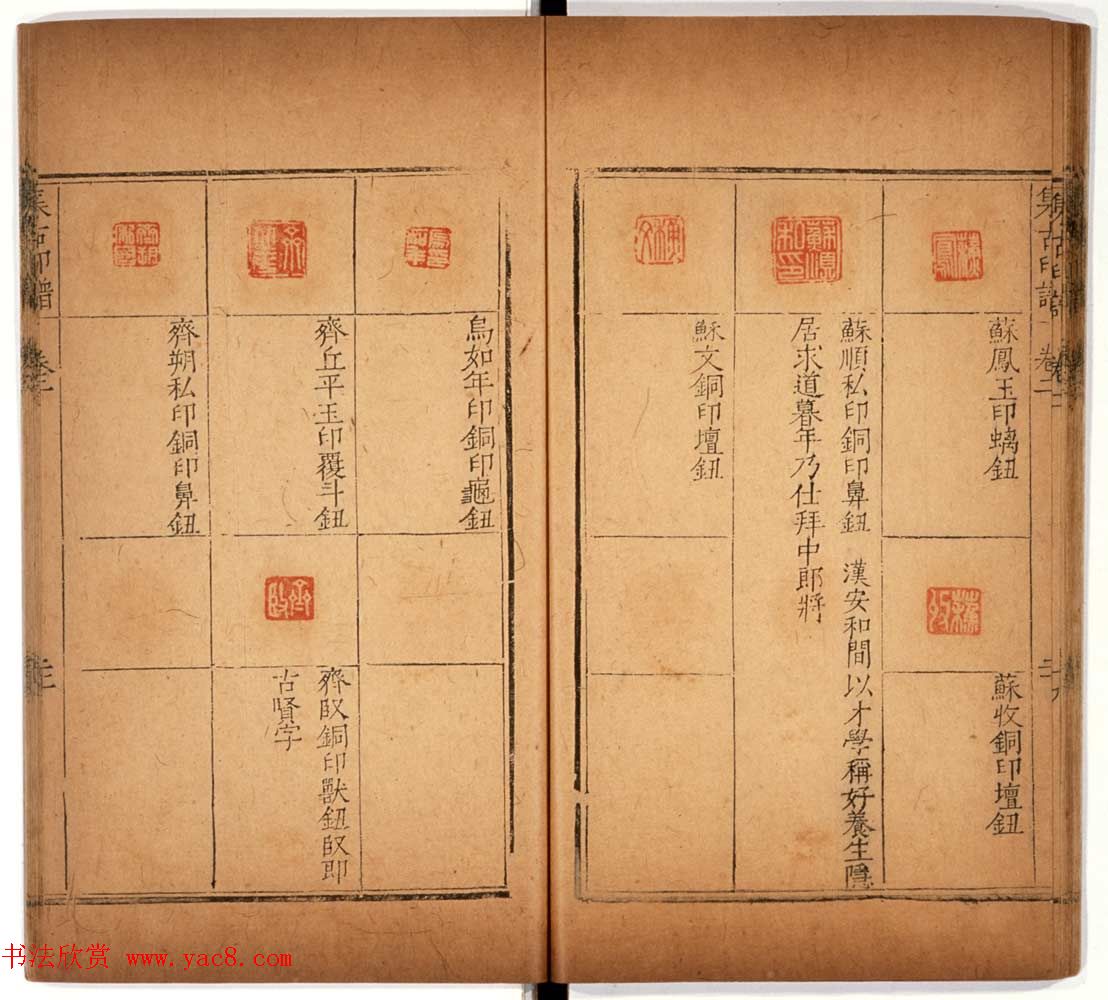 集古印譜 卷二 二十九
蘇鳳
蘇鳳玉印螭鈕
蘇收銅印壇鈕
蘇順私印
蘇順私印銅印鼻鈕 漢安和間以才學稱好養生隱
居求道暮年乃仕拜中郎將
穌文銅印壇鈕
烏如年印銅印龜鈕
齊丘平玉印覆斗鈕
齊臤銅印獸鈕臤即
古賢字
齊朔私印銅印鼻鈕
集古印譜
書法欣赏 www.yac8.com